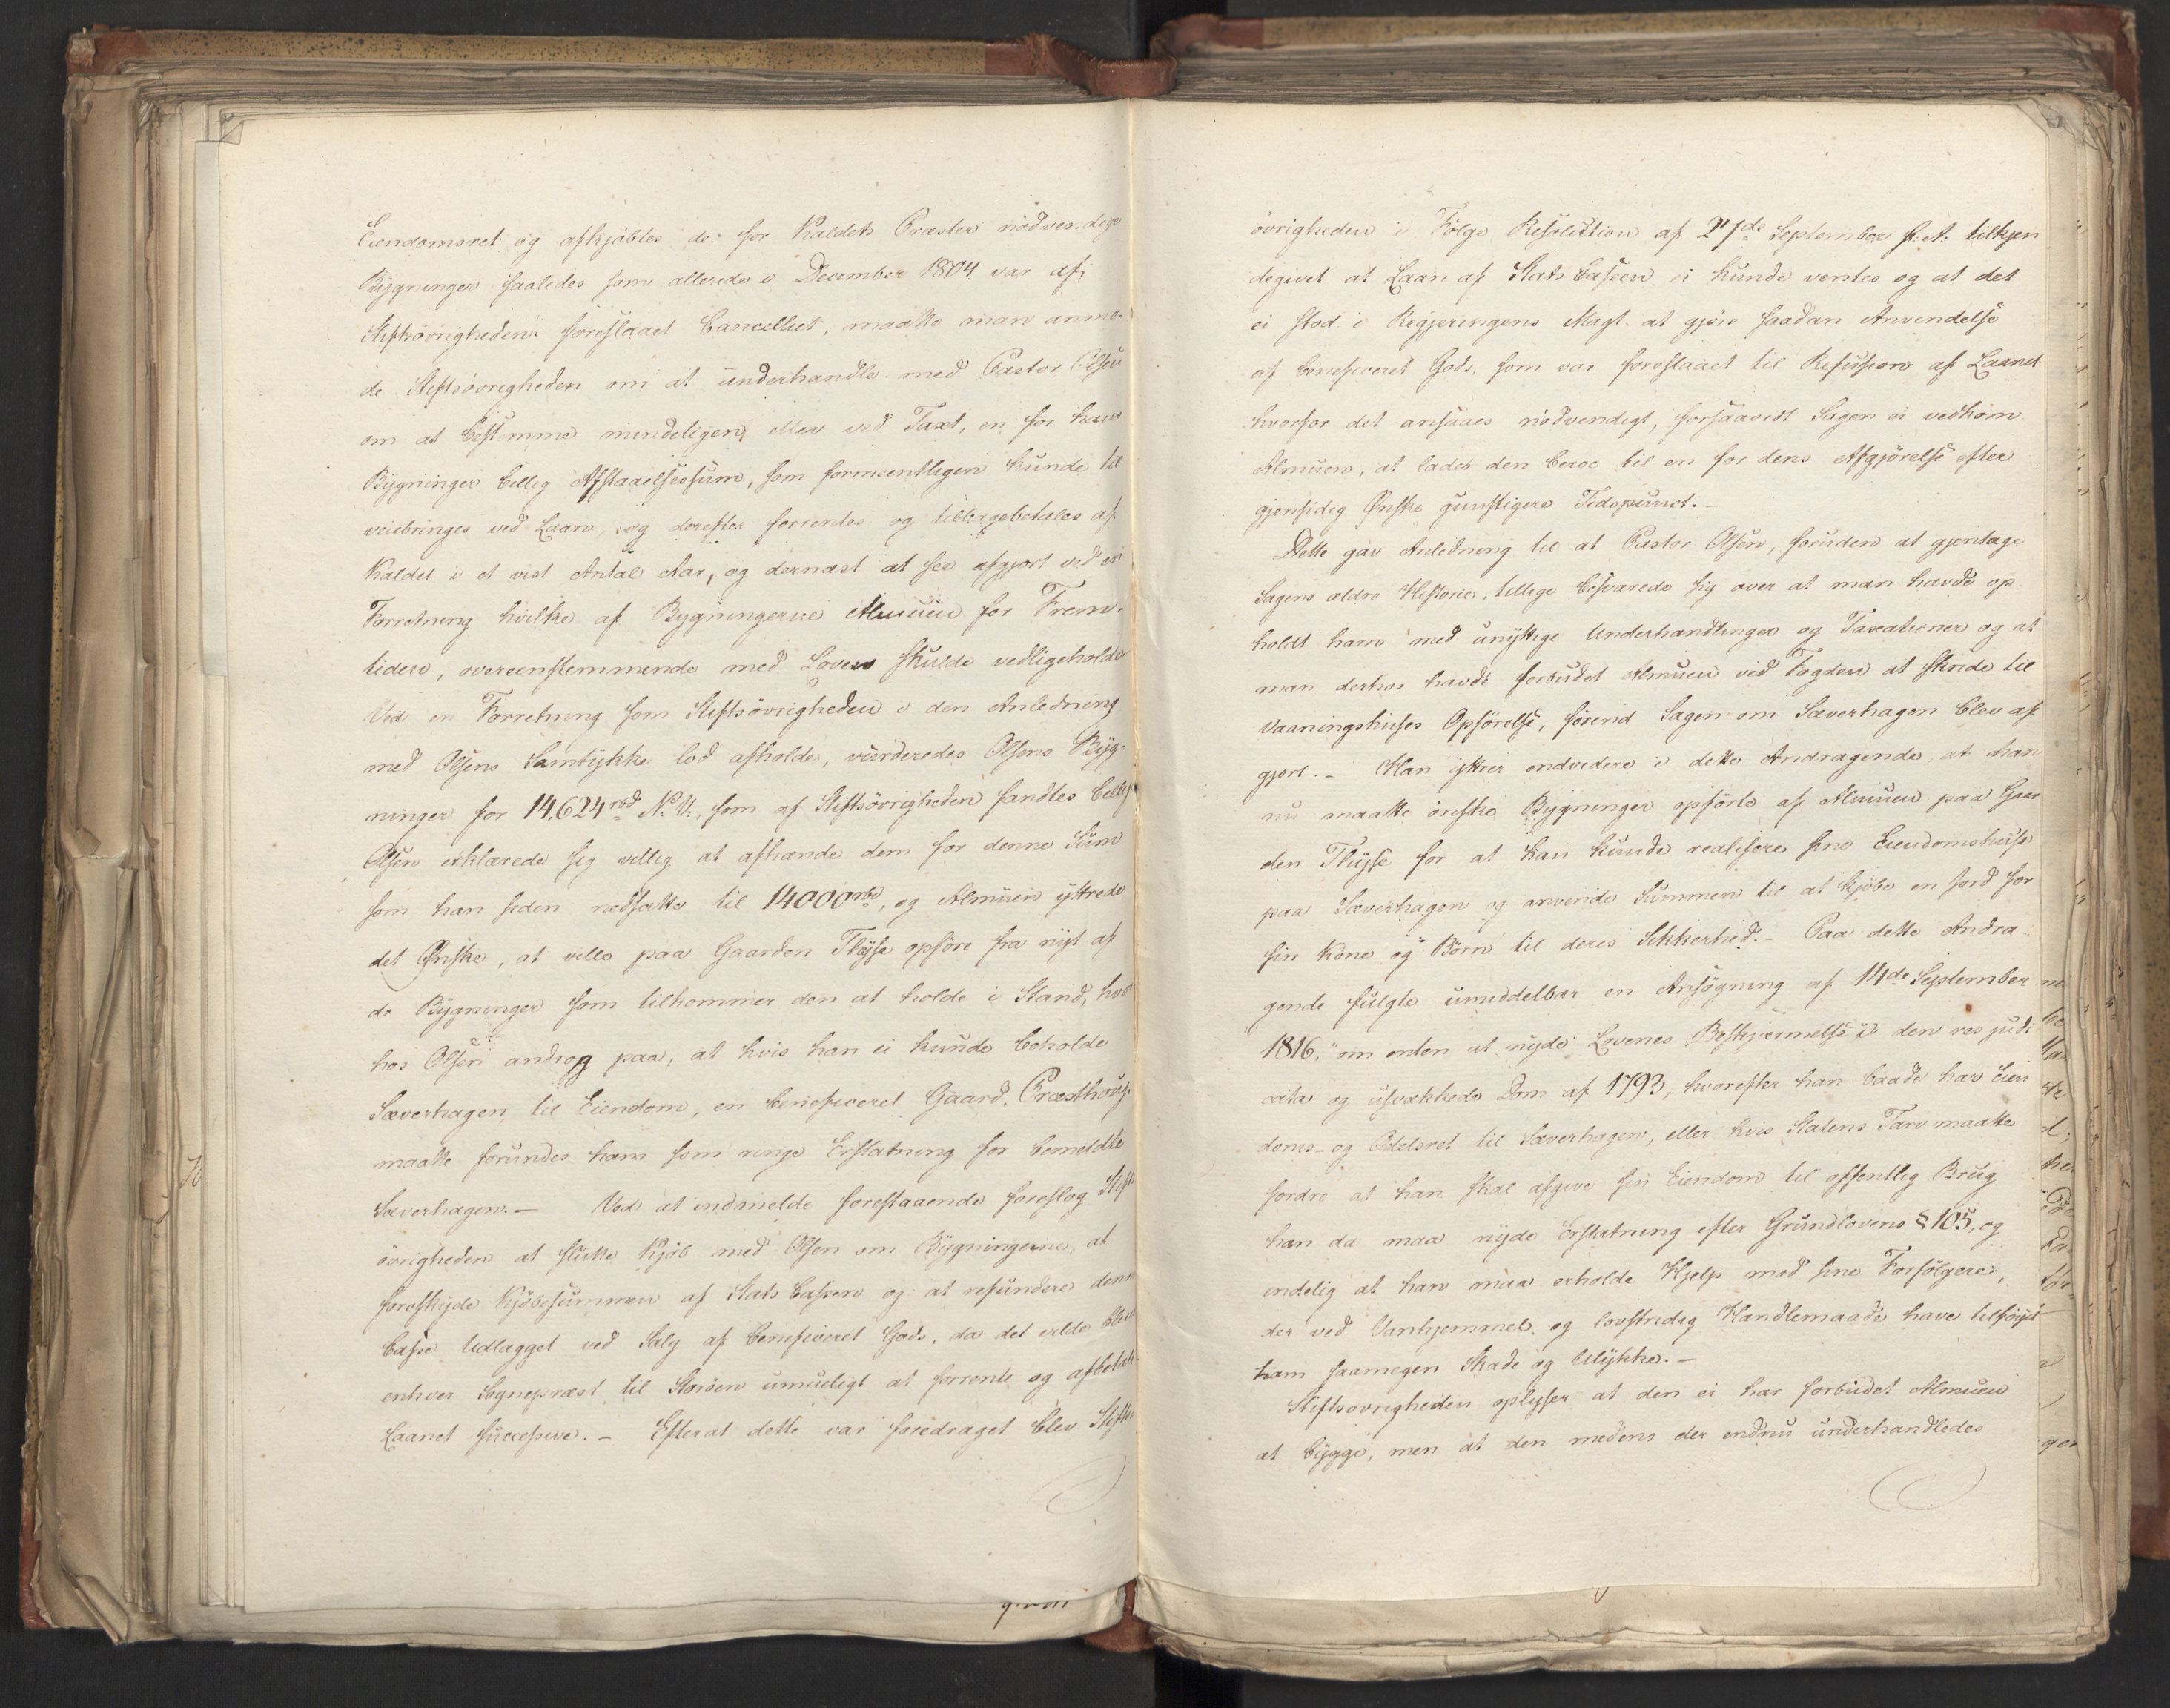 Eiendomsret og afkjøbtes de for Kaldets Præster nødvendige
Bygninger saaledes som allerede i December 1804 var af
Stiftsøvrigheden foreslaaet Cancelliet, maatte man anmo-
de Stiftsøvrigheden om at underhandle med Pastor Olsen
om at bestemme mindeligen eller ved Taxt, en for hans
Bygninger billig Afstaaelsessum, som formeentligen kunde til
veiebringes ved Laan, og derefter forrentes og tilbagebetales af
Kaldet i et vist Antal Aar, og dernæst at see afgjort ved en
Forretning hvilke af Bygningerne Almuen for Frem-
tiden, overeenstemmende med Loven skulde vedligeholde
Ved en Forretning som Stiftsøvrigheden i den Anledning
med Olsens Samtykke lod afholde, vurderedes Olsens Byg-
ninger for 14,624 rbd. N.V., som af Stiftsøvrigheden fandtes billig
Olsen erklærede sig villig at afhænde dem for denne Sum
som han siden nedsatte til 14000 rbd, og Almuen yttrede
det Ønske, at ville paa Gaarden Thyse opføre fra nyt af
de Bygninger som tilkommer den at holde i Stand, hvor
hos Olsen androg paa, at hvis han ei kunde beholde
Sæverhagen til Eiendom, en beneficeret Gaard, Præsthory,
maatte forundes ham som ringe Erstatning for bemeldte
Sæverhagen. — Ved at indmelde forestaaende foreslog Stifts
øvrigheden at slutte Kjøb med Olsen om Bygningerne, at
forskyde Kjøbesummen af Stats Cassen og at refundere denne
Casse Udlægget ved Salg af beneficeret Gods, da det vilde blive
enhver Sognepræst til Storøen umueligt at forrente og afbetale
Laanet successive. — Efterat dette var foredraget blev Stifts
øvrigheden i Følge Resolution af 27de September f. A. tilkjen
degivet at Laan af Stats Cassen ei kunde ventes og at det
ei stod i Regjeringens Magt at gjøre saadan Anvendelse
af beneficeret Gods, som var foreslaaet til Refusion af Laanet
hvorfor det ansaaes nødvendigt, forsaavidt Sagen ei vedkom
Almuen, at lade den beroe til en for dens Afgjørelse efter
gjensidig Ønske gunstigere Tidspunct. —
Dette gav Anledning til at Pastor Olsen, foruden at gjentage
Sagens ældre Historie, tillige besværede sig over at man havde op
holdt ham med unyttige Underhandlinger og Taxationer og at
man derhos havde forbudet Almuen ved Fogden at skride til
Vaaningshuses Opførelse, førend Sagen om Sæverhagen blev af
gjort. — Han yttrer endvidere i dette Andragende, at han
nu maatte ønske Bygninger opførte af Almuen paa Gaar
den Thyse for at han kunde realisere sine Eiendomshuse
paa Sæverhagen og anvende Summen til at kjøbe en Jord for
sin Kone og Børn til deres Sikkerhed. — Paa dette Andra-
gende fulgte umiddelbar en Ansøgning af 14de September
1816, "om enten at nyde Lovenes Beskjærmelse i den res judi
cata og usvækkede Dom af 1793, hvorefter han baade har Eien
doms- og Odelsret til Sæverhagen, eller hvis Statens Tarv maatte
fordre at han skal afgive sin Eiendom til offentlig Brug
han da maa nyde Erstatning efter Grundlovens § 105, og
endelig at han maa erholde Hjelp mod sine Forfølgere,
der ved Vanhjemmel og lovstridig Handlemaade have tilføiet
ham saamegen Skade og Ulykke. —
Stiftsøvrigheden oplyser at den ei har forbudet Almuen
at bygge, men at den medens der endnu underhandledes